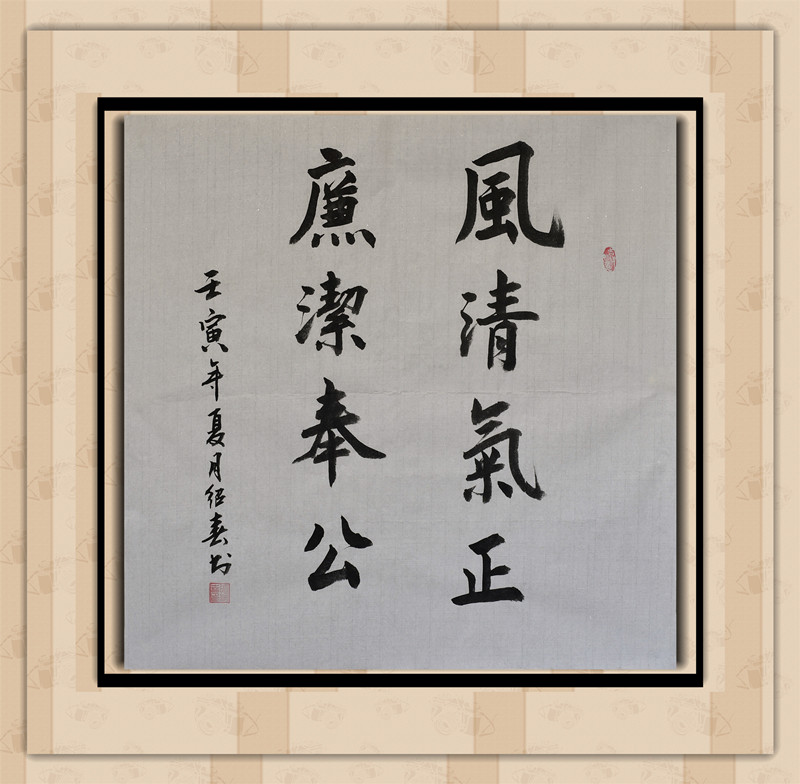 風清氣正
廉潔奉公
壬寅年夏月绍春书